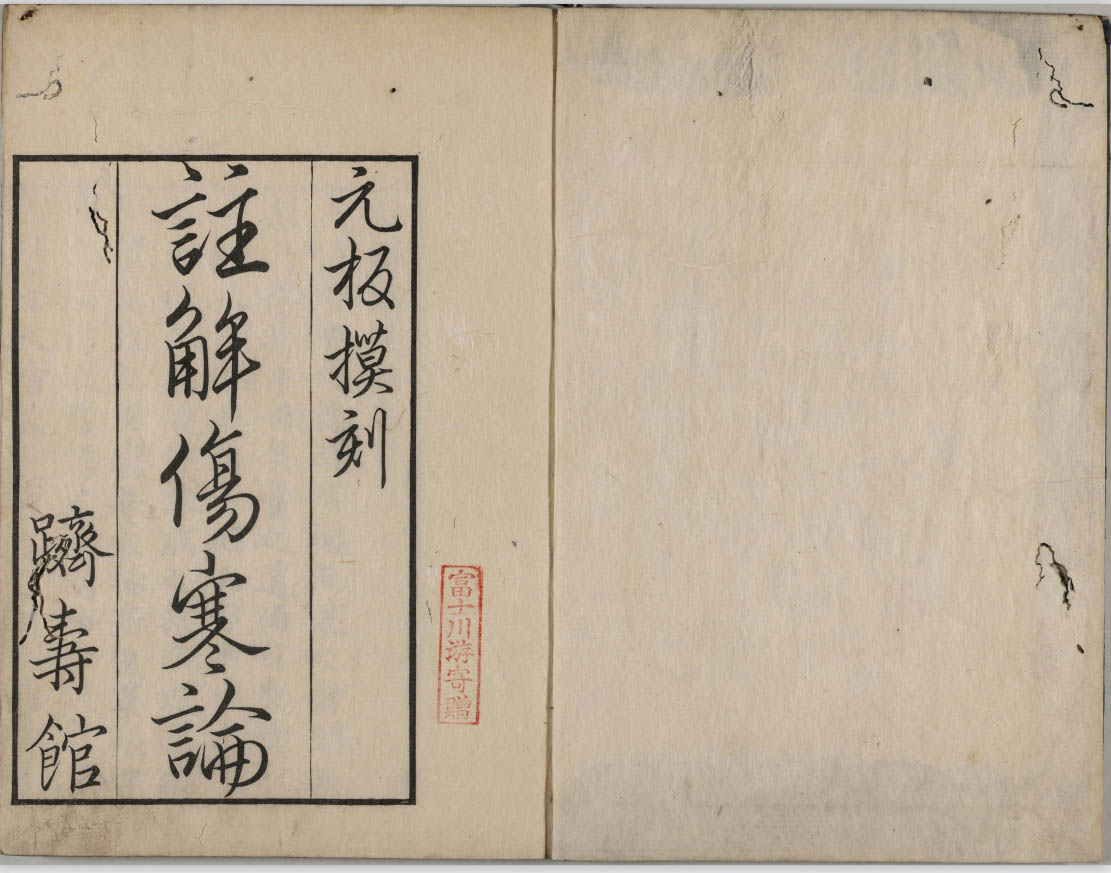 元板摸刻
註解傷寒論
躋壽館
富士川游寄贈